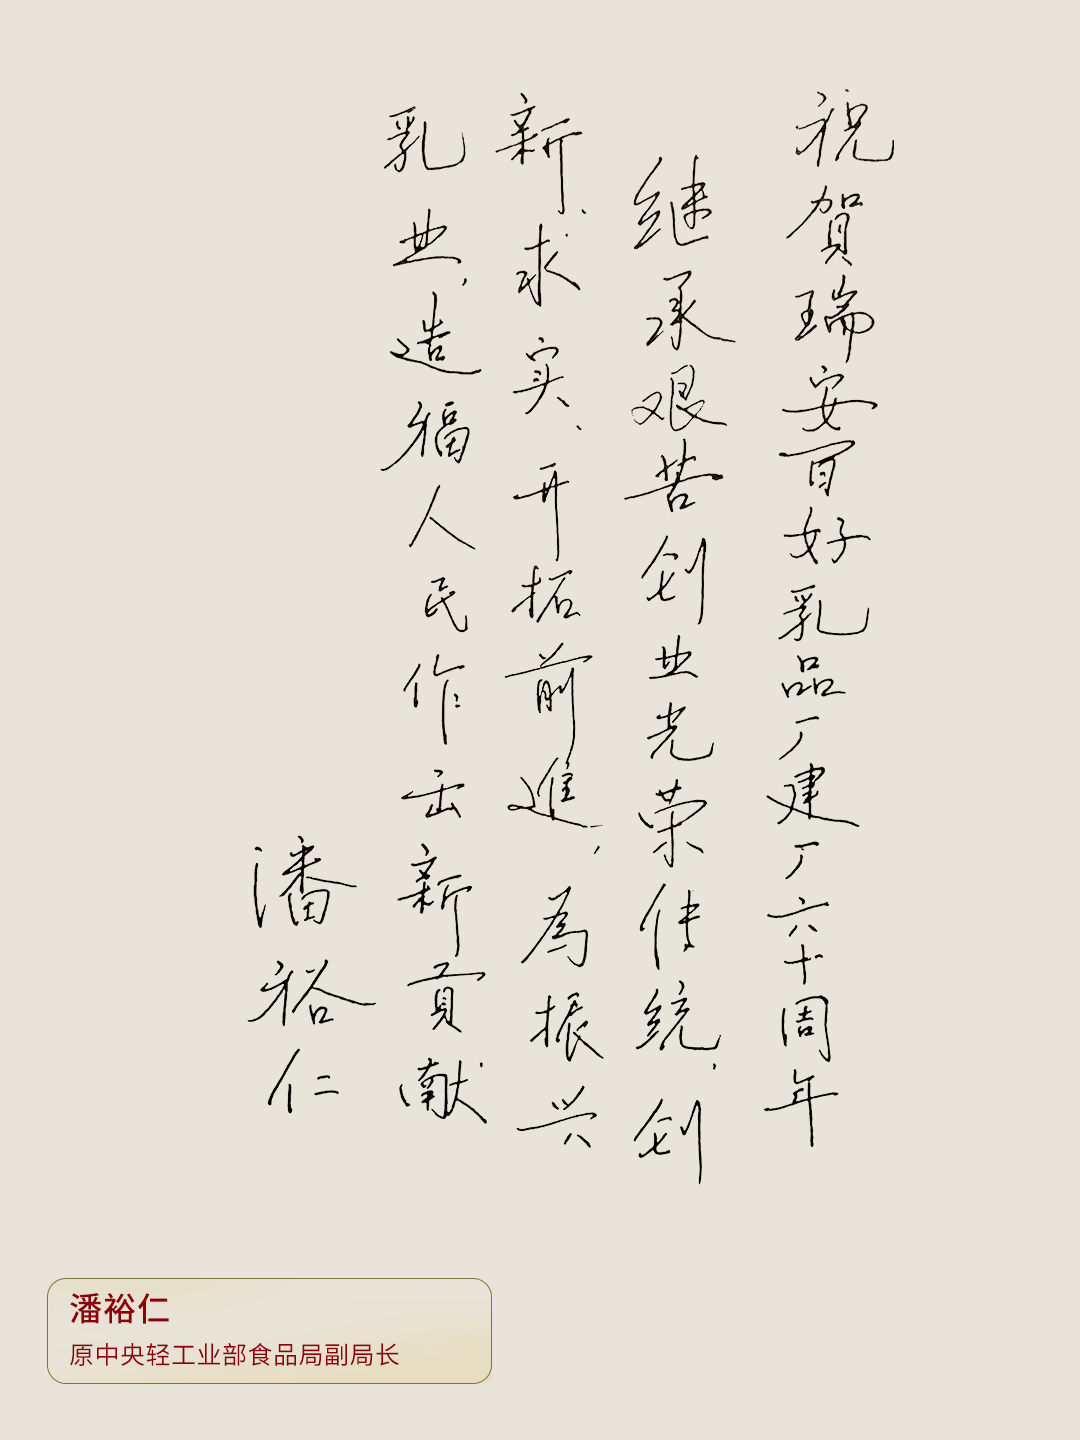 祝賀瑞安百好乳品厂建厂六十周年
继承艰苦创业光荣传统，创
新、求实、开拓前進，為振兴
乳业，造福人民作出新贡献
潘裕仁
潘裕仁
原中央轻工业部食品局副局长